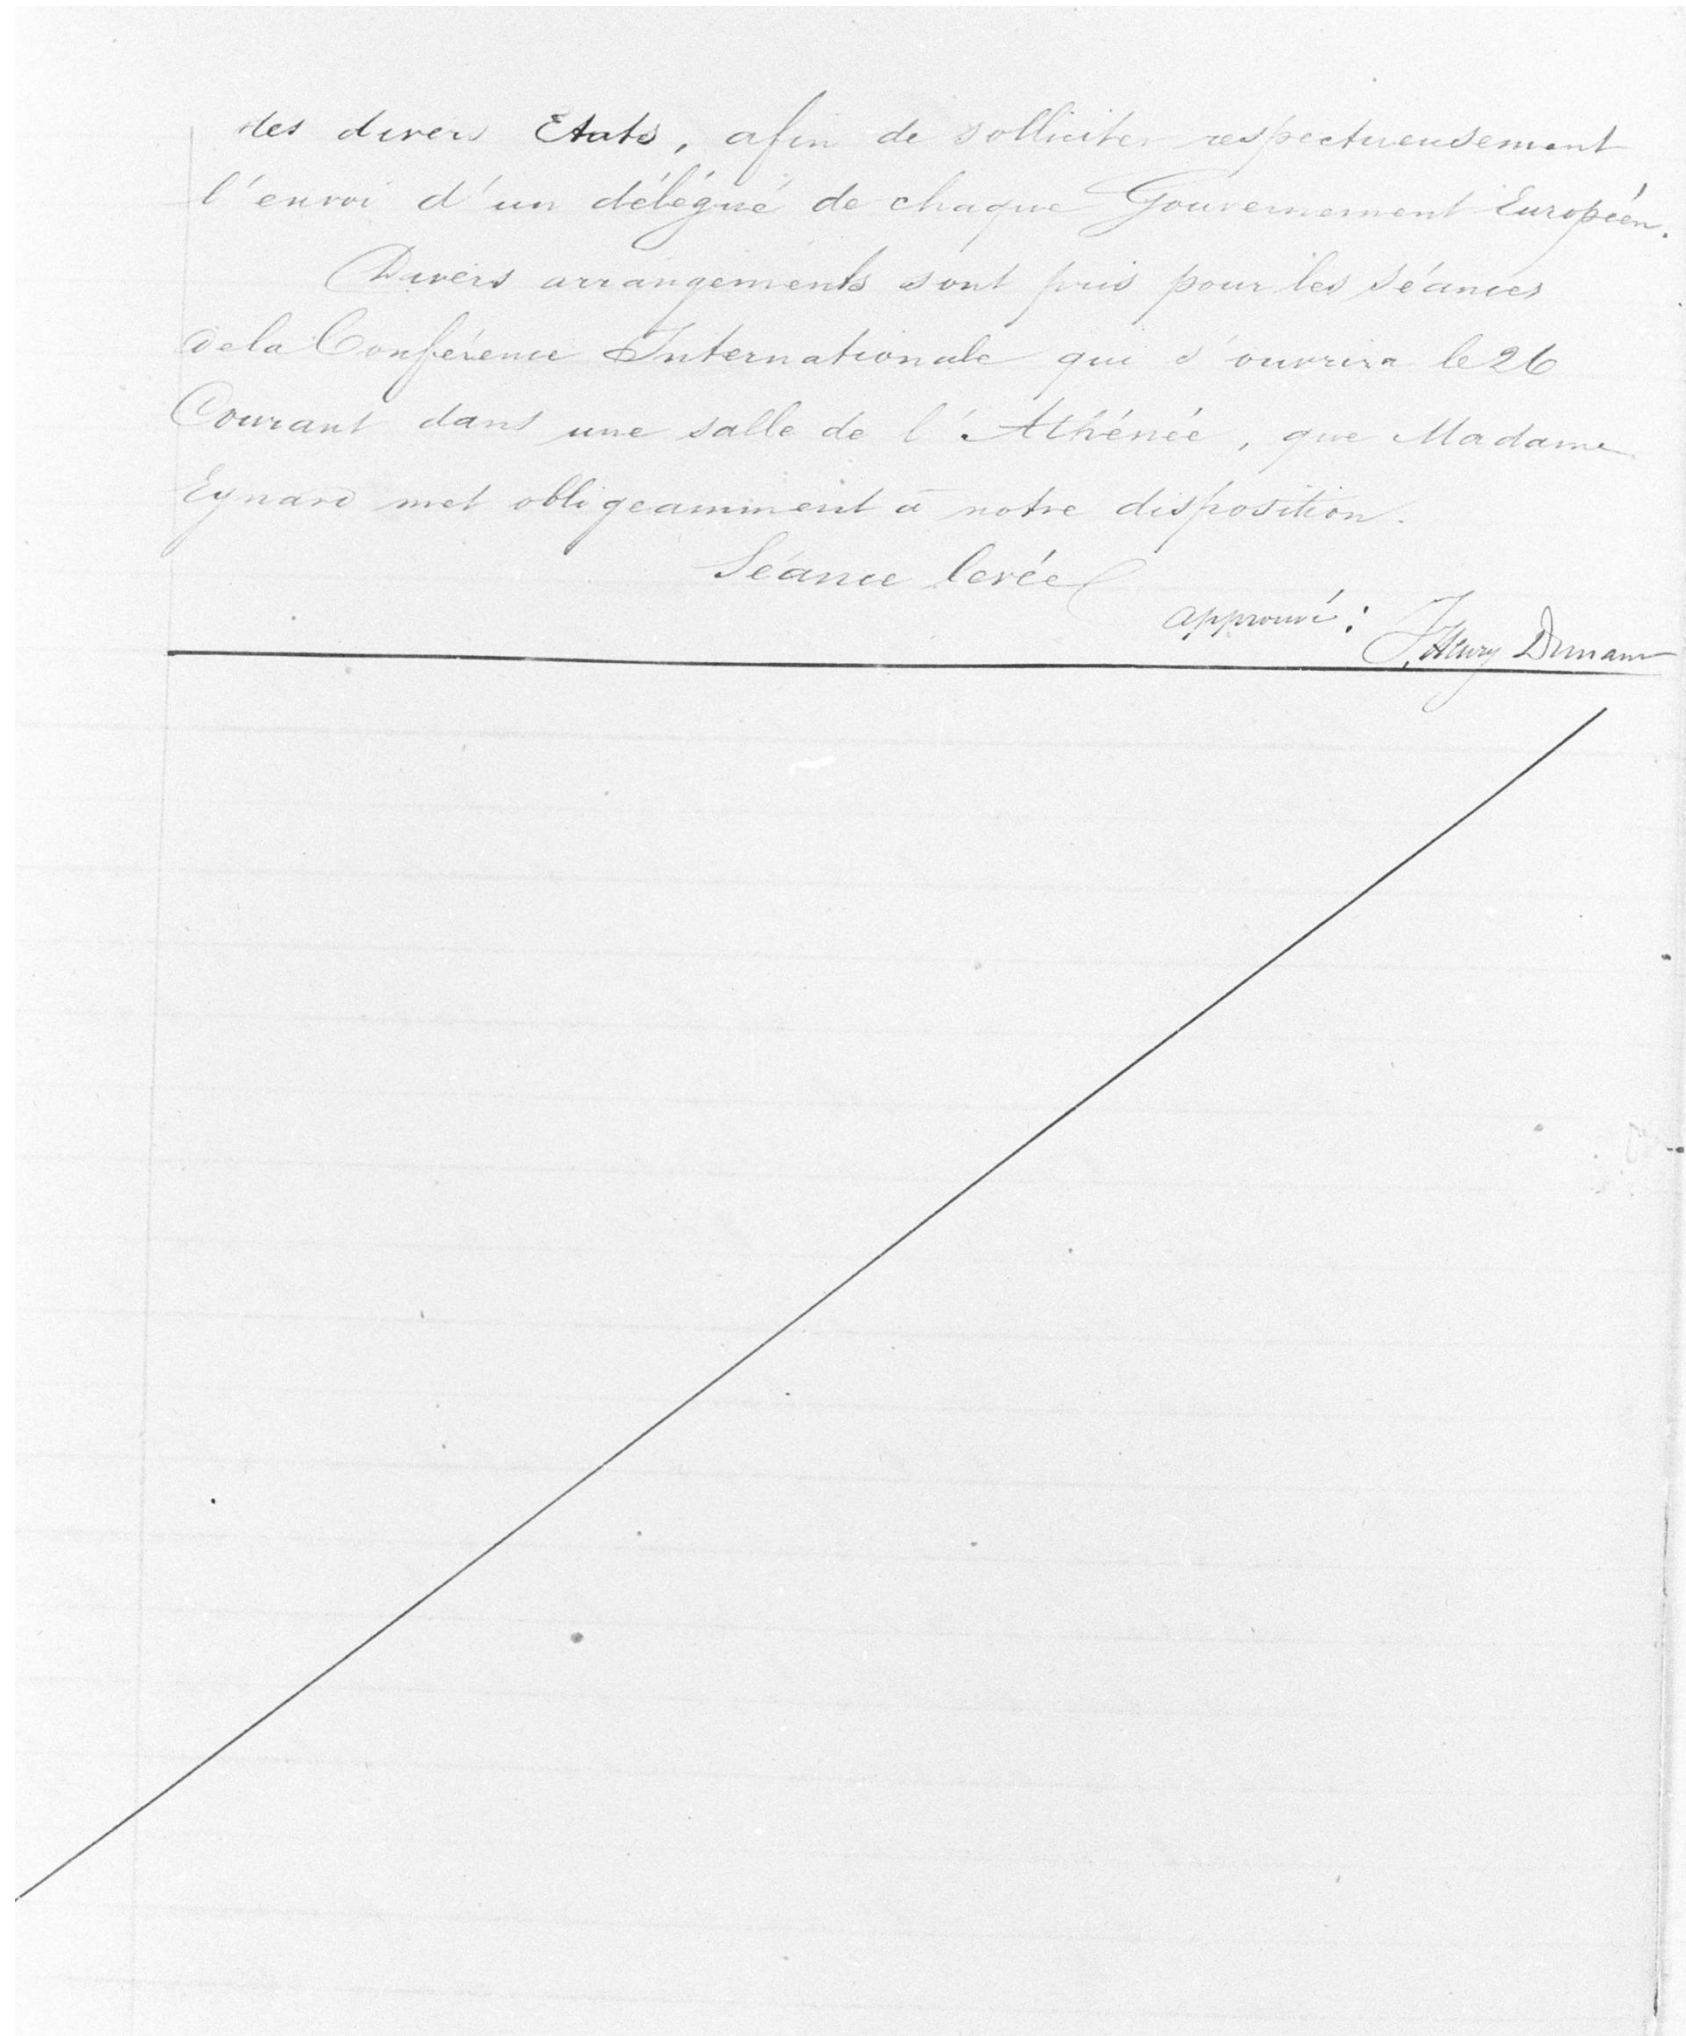 des divers Etats, afin de solliciter respectueusement
l'envoi d'un délégué de chaque Gouvernement Européen.
Divers arrangements sont pris pour les Séances
de la Conférence Internationale qui s'ouvrira le 26
Courant dans une salle de l'Athénée, que Madame
Eynard met obligeamment à notre disposition.
Séance levée
approuvé :
J. Henry Dunant